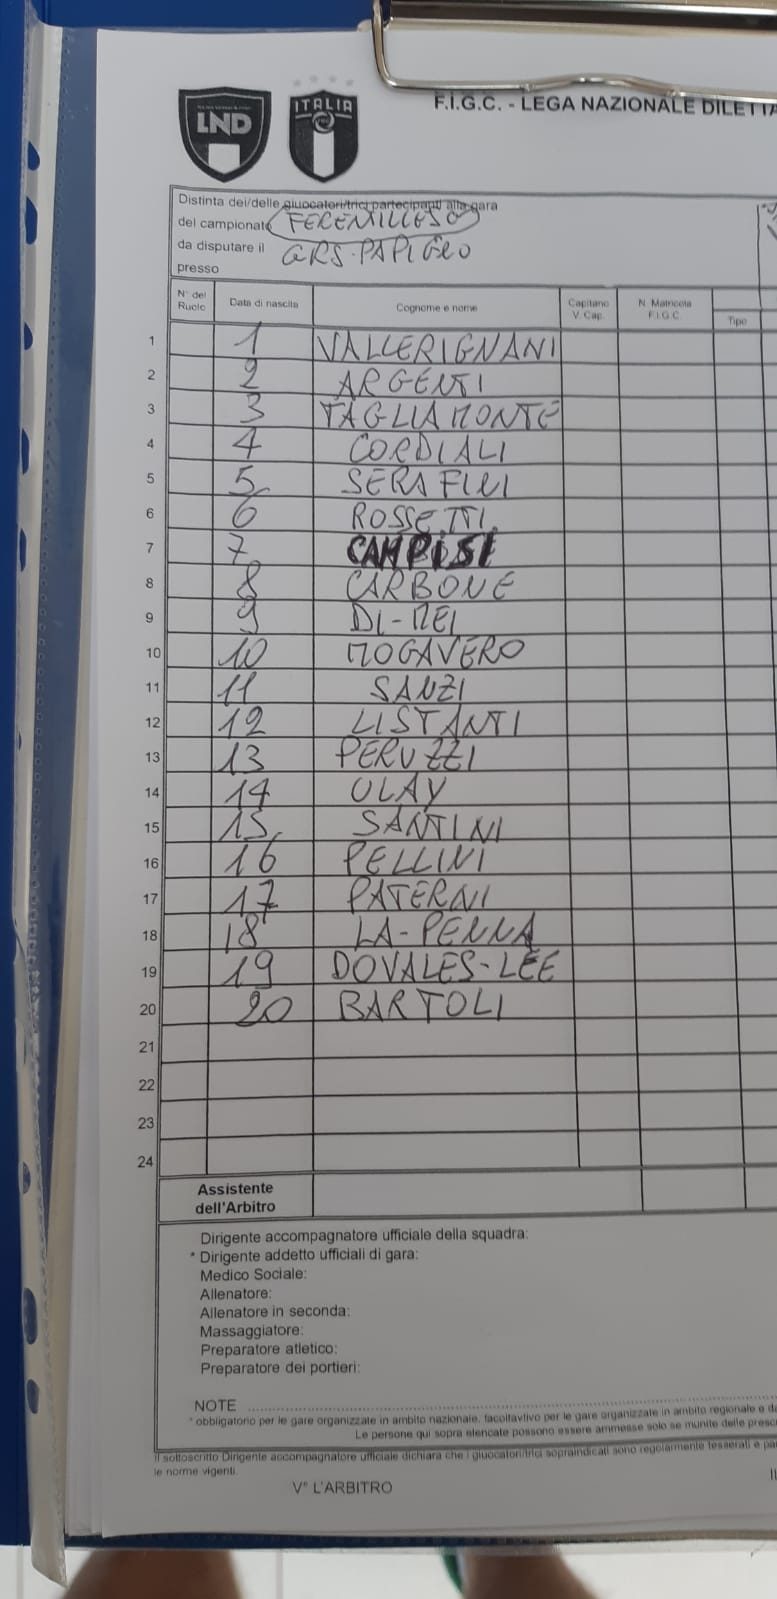 LND
ITALIA
F.I.G.C. - LEGA NAZIONALE DILETTA
Distinta dei/delle giuocatori/trici partecipanti alla gara
del campionato FERENTILLESO
da disputare il GRS-PAPIGNO
presso
N° del Ruolo Data di nascita Cognome e nome Capitano V. Cap. N. Matricola F.I.G.C. Tipo
1 1 VALLERIGNANI
2 2 ARGENTI
3 3 TAGLIAMONTE
4 4 CORDIALI
5 5 SERAFINI
6 6 ROSSETTI
7 7 CAMPISI
8 8 CARBONE
9 9 DI-MEI
10 10 MOGAVERO
11 11 SANZI
12 12 LISTANTI
13 13 PERUZZI
14 14 OLAY
15 15 SANTINI
16 16 PELLINI
17 17 PATERNI
18 18 LA-PENNA
19 19 DOVALES-LEE
20 20 BARTOLI
21
22
23
24
Assistente
dell'Arbitro
Dirigente accompagnatore ufficiale della squadra:
* Dirigente addetto ufficiali di gara:
Medico Sociale:
Allenatore:
Allenatore in seconda:
Massaggiatore:
Preparatore atletico:
Preparatore dei portieri:
NOTE
* obbligatorio per le gare organizzate in ambito nazionale, facoltavtivo per le gare organizzate in ambito regionale e da
Le persone qui sopra elencate possono essere ammesse solo se munite delle presc
Il sottoscritto Dirigente accompagnatore ufficiale dichiara che i giuocatori/trici sopraindicati sono regolarmente tesserati e par
le norme vigenti.
V° L'ARBITRO